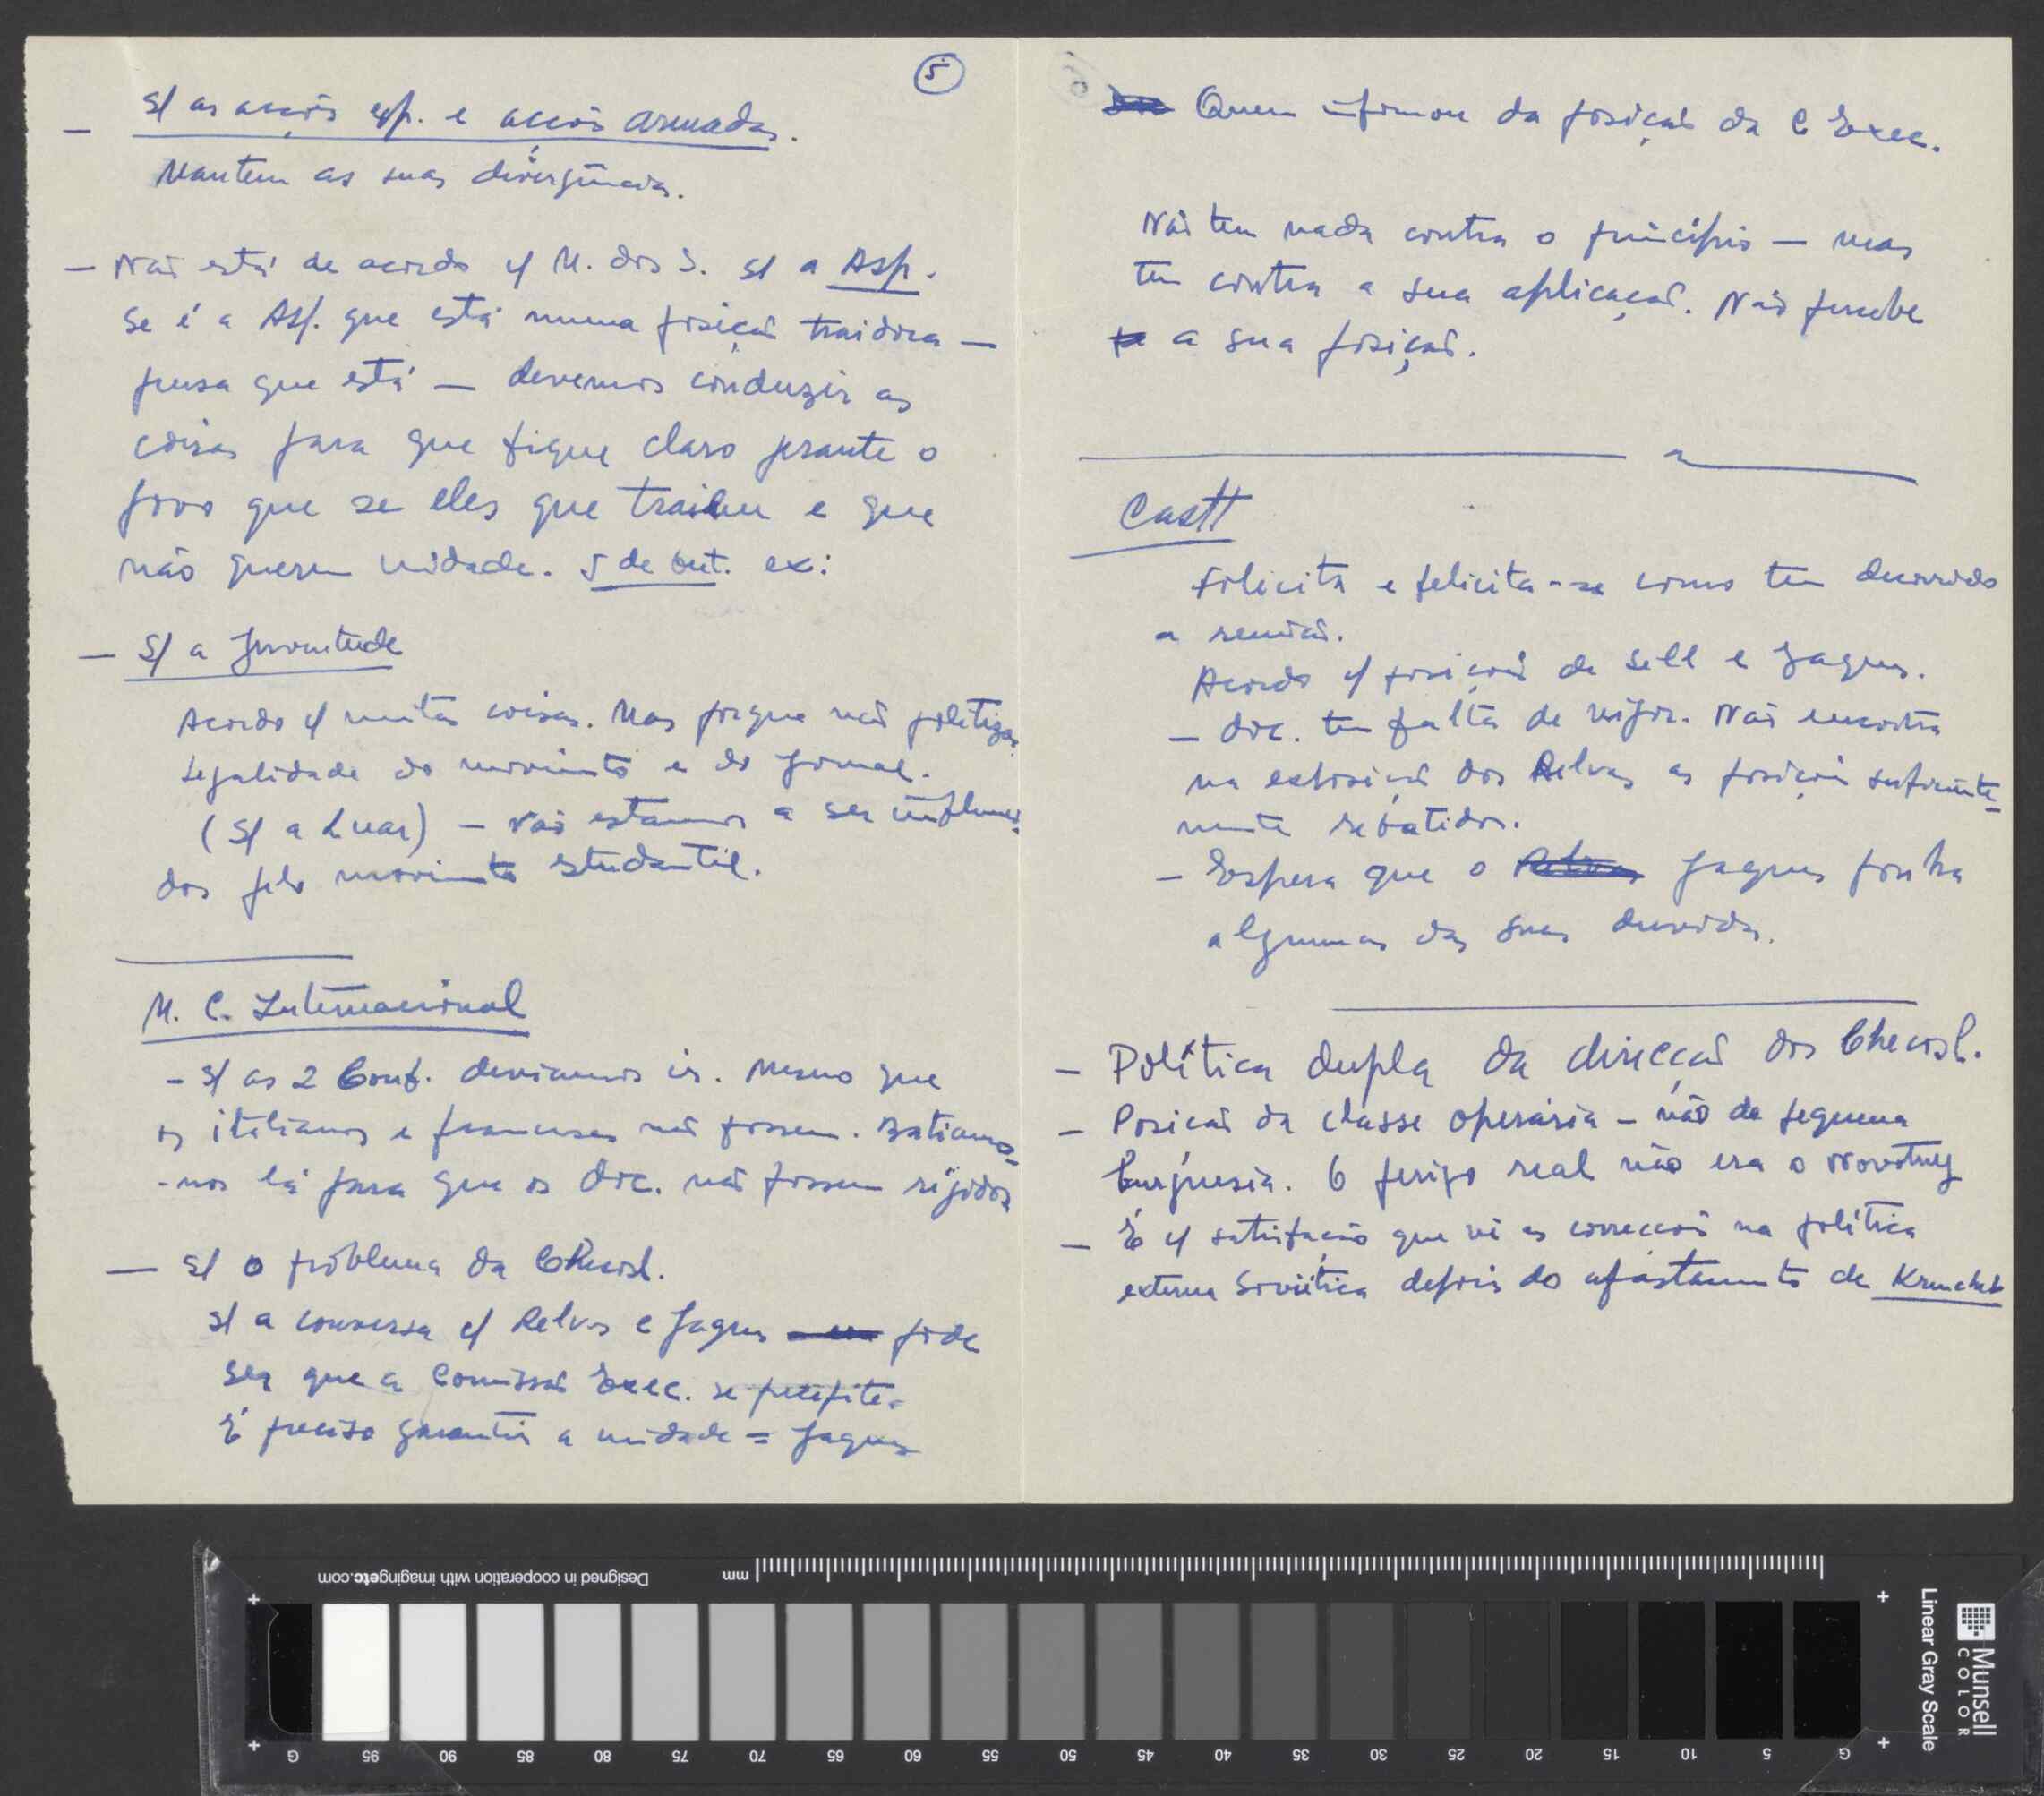 5
— S/ as acções esp. e acções armadas.
Mantem as suas divergências.
— Não está de acordo c/ M. dos S. s/ a Asp.
Se é a Asp. que está numa posição traidora —
pensa que está — devemos conduzir as
coisas para que fique claro perante o
povo que se eles que traiem e que
não querem unidade. 5 de Out. ex:
— S/ a Juventude
Acordo c/ muitas coisas. Mas porque não politizar
Legalidade do movimento e do jornal.
(S/ a Luar) — Não estamos a ser influencia-
dos pelo movimento estudantil.
M. C. Internacional
- S/ as 2 Conf. deviamos ir. Mesmo que
os italianos e franceses não fossem. Batiamo-
-nos lá para que os doc. não fossem rígidos
— S/ o problema da Checosl.
S/ a conversa c/ Relvas e Jaques pode
ser que a Comissão Exec. se precipite.
É preciso garantir a unidade = Jaques
Quem informou da posição da C Exec.
Não tem nada contra o princípio — mas
tem contra a sua aplicação. Não percebe
a sua posição.
Castt
Felicita e felicita-se como tem decorrido
a reunião.
Acordo c/ posições de Sell e Jaques.
— doc. tem falta de vigor. Não encontra
na exposição dos Relvas as posições suficiente-
mente rebatidas.
— Espera que o Relvas Jaques ponha
algumas das suas duvidas.
— Política dupla da direcção dos Checosl.
— Posição da classe operária — não da pequena
burguesia. O perigo real não era o Novotny
— É c/ satisfação que vê as correcções na política
externa Soviética depois do afastamento de Kruchev
Designed in cooperation with imagingetc.com
mm
G 95 90 85 80 75 70 65 60 55 50 45 40 35 30 25 20 15 10 5 G
Munsell
COLOR
Linear Gray Scale